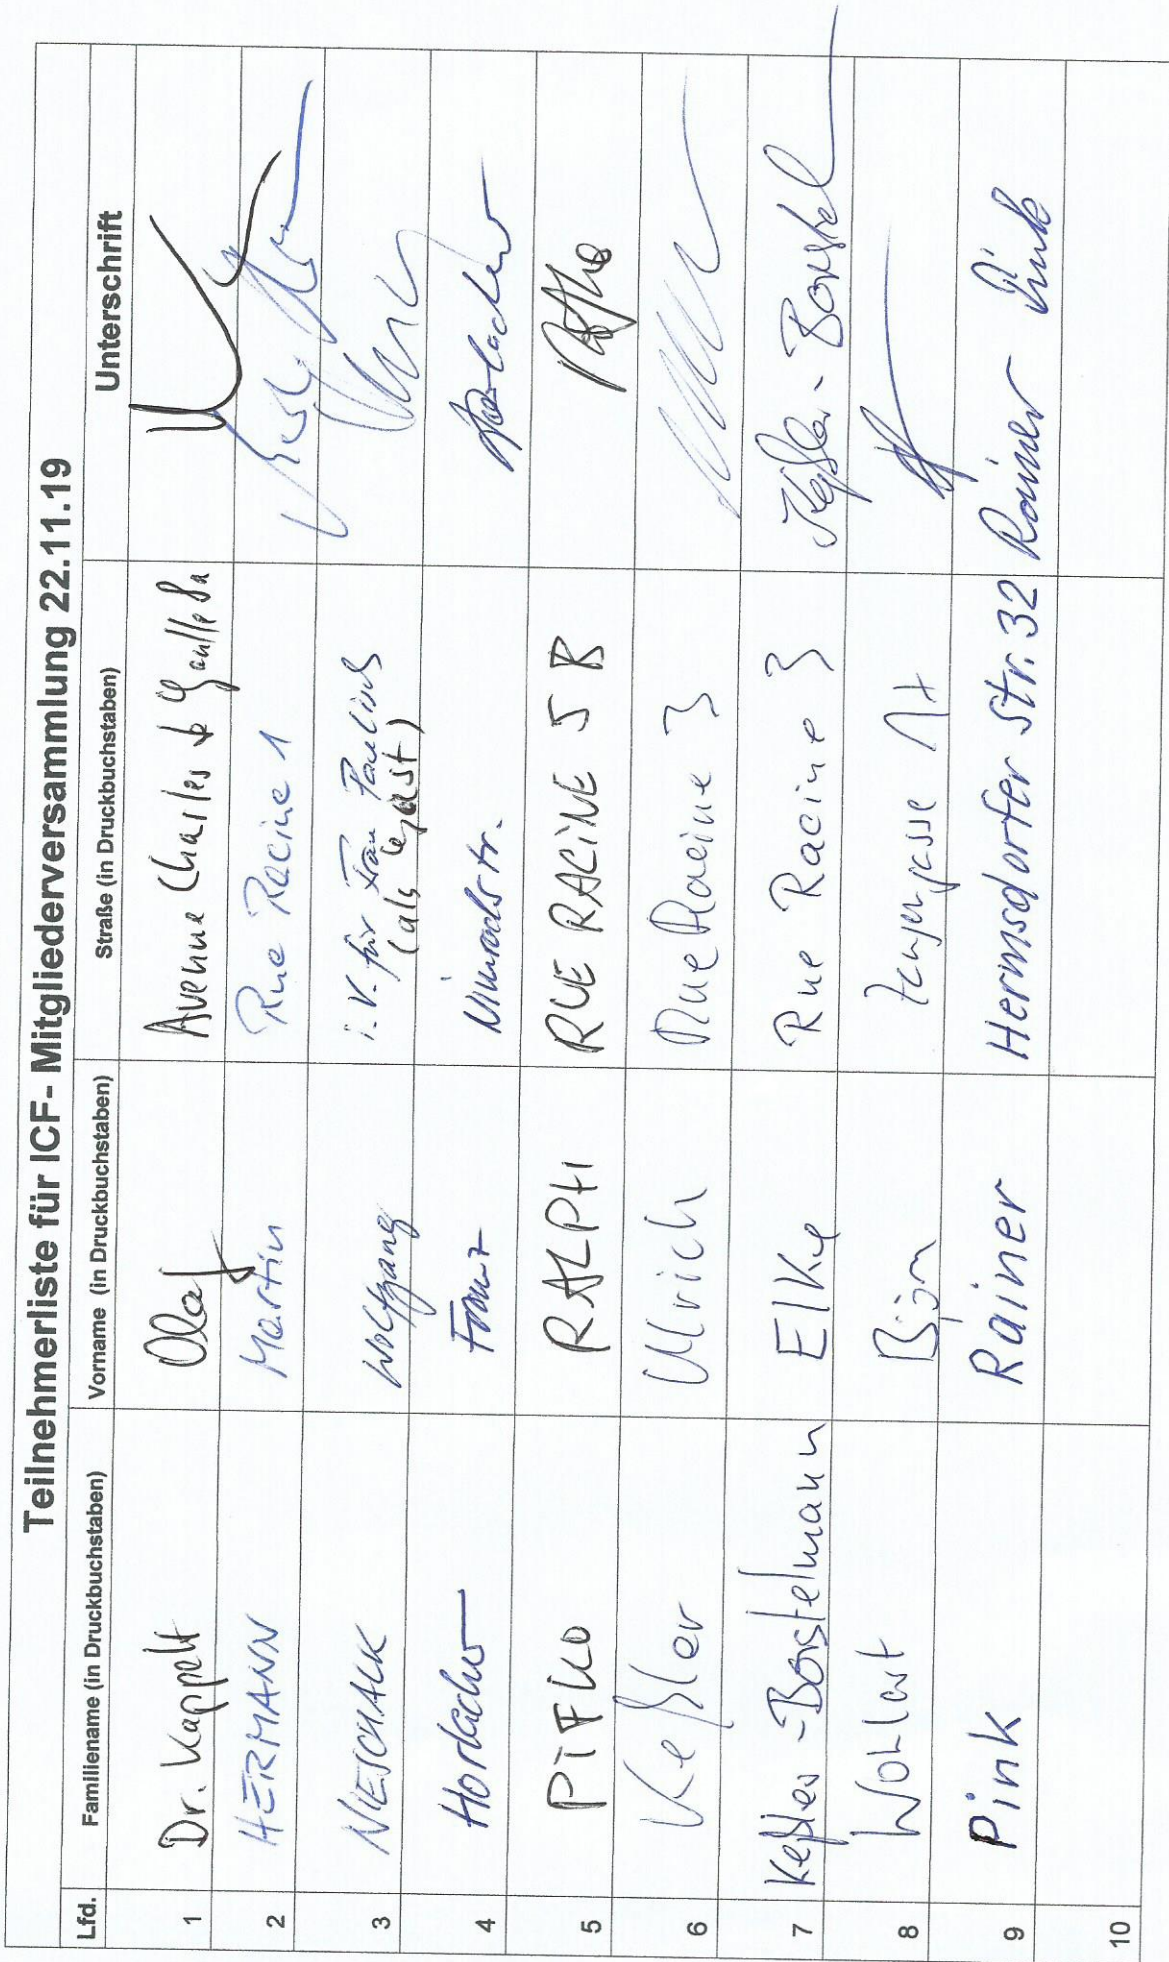 Teilnehmerliste für ICF- Mitgliederversammlung 22.11.19
Lfd. Familiename (in Druckbuchstaben) Vorname (in Druckbuchstaben) Straße (in Druckbuchstaben) Unterschrift
1 Dr. Kappelt Olaf Avenue Charles de Gaulle 8a
2 HERMANN Martin Rue Racine 1
3 NIESCHALK Wolfgang i.V. für Frau
(als Gast)
4 Horlacher Franz Nimrodstr. Horlacher
5 PIFKO RALPH RUE RACINE 5 B Pifko
6 Keßler Ulrich Rue Racine 3
7 Keßler-Borstelmann Elke Rue Racine 3 Keßler-Borstel
8 Wohlert Björn
9 Pink Rainer Hermsdorfer Str. 32 Rainer Pink
10